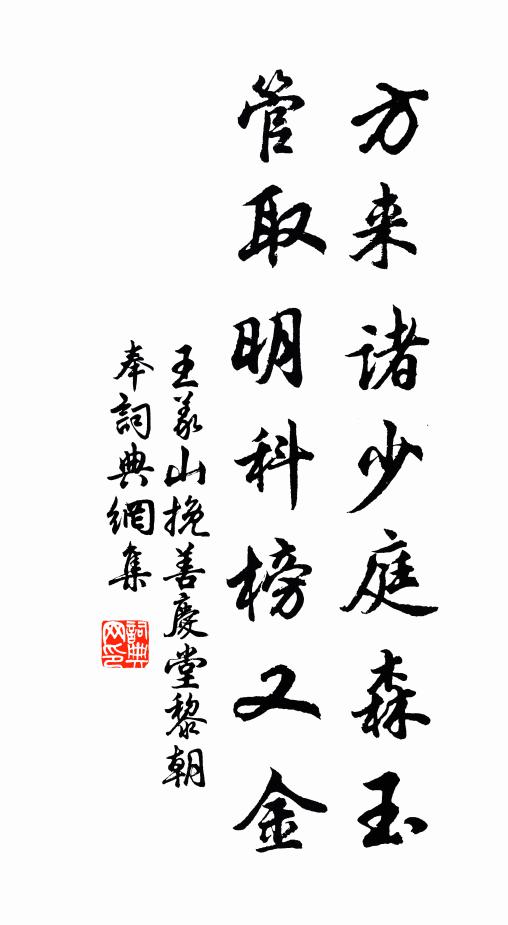 方来诸少庭森玉
管取明科榜又金
王义山挽善慶堂黎朝
奉詞典網集
詞典网印